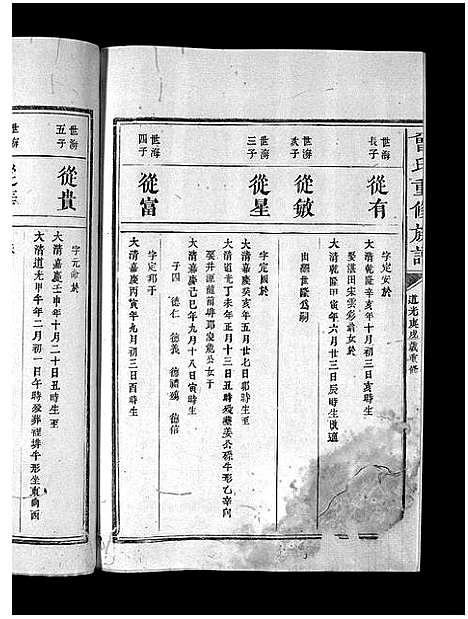 氏重修族譜
道光庚戌歲重修
世海
長子
從有
字定安於
大清乾隆辛亥年十月初三日亥時生
娶湛田宋雲彩翁女於
世海
次子
從敏
大清乾隆甲寅年六月廿三日辰時生
出繼世隆爲嗣
世海
三子
從星
字定國於
大清嘉慶癸亥年五月廿七日卯時生至
大清道光丁未年正月十三日丑時歿葬姜公磜牛形乙辛向
大清嘉慶己巳年九月十八日寅時生
子四 德仁 德義 德禮 德信
世海
四子
從富
字定邦于
大清嘉慶丙寅年九月初三日酉時生
世海
五子
從貴
字元命於
大清嘉慶壬申年十月二十日丑時生至
大清道光甲午年二月初一日午時歿葬裡排牛形坐東向西